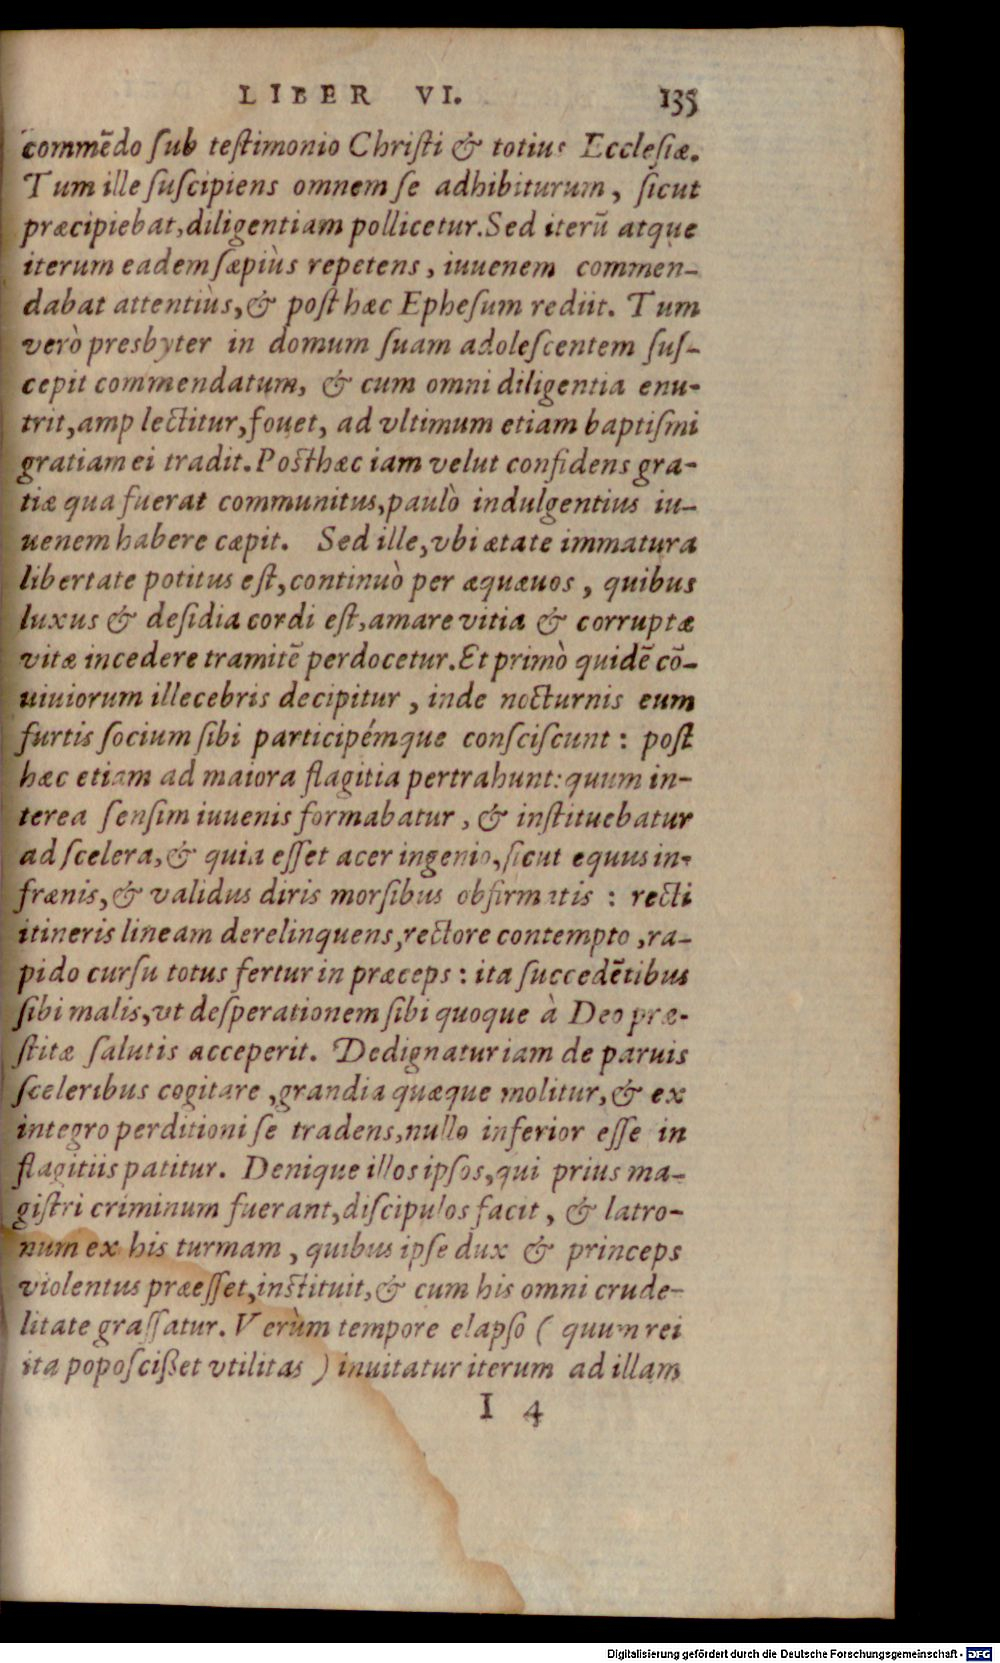 LIBER VI. 135
com̄ẽdo ſub teſtimonio Chriſti & totius Eccleſiæ.
Tum ille ſuſcipiens omnem ſe adhibiturum, ſicut
præcipiebat, diligentiam pollicetur. Sed iterũ atque
iterum eadem ſæpiùs repetens, iuuenem commen-
dabat attentiùs, & poſt hæc Epheſum rediit. Tum
verò presbyter in domum ſuam adoleſcentem ſuſ-
cepit commendatum, & cum omni diligentia enu-
trit, amplectitur, fouet, ad vltimum etiam baptiſmi
gratiam ei tradit. Poſthæc iam velut confidens gra-
tiæ qua fuerat communitus, paulò indulgentius iu-
uenem habere cœpit. Sed ille, vbi ætate immatura
libertate potitus eſt, continuò per æquæuos, quibus
luxus & deſidia cordi eſt, amare vitia & corruptæ
vitæ incedere tramitẽ perdocetur. Et primò quidẽ cõ-
uiuiorum illecebris decipitur, inde nocturnis eum
furtis ſocium ſibi participémque conſciſcunt: poſt
hæc etiam ad maiora flagitia pertrahunt: quum in-
terea ſenſim iuuenis formabatur, & inſtituebatur
ad ſcelera, & quia eſſet acer ingenio, ſicut equus in-
frænis, & validus diris morſibus obfirmatis: recti
itineris lineam derelinquens, rectore contempto, ra-
pido curſu totus fertur in præceps: ita ſuccedẽtibus
ſibi malis, vt deſperationem ſibi quoque à Deo præ-
ſtitæ ſalutis acceperit. Dedignatur iam de paruis
ſceleribus cogitare, grandia quæque molitur, & ex
integro perditioni ſe tradens, nullo inferior eſſe in
flagitiis patitur. Denique illos ipſos, qui prius ma-
giſtri criminum fuerant, diſcipulos facit, & latro-
num ex his turmam, quibus ipſe dux & princeps
violentus præeſſet, inſtituit, & cum his omni crude-
litate graſſatur. Verùm tempore elapſo (quum rei
ita popoſcißet vtilitas) inuitatur iterum ad illam
I 4
Digitalisierung gefördert durch die Deutsche Forschungsgemeinschaft - DFG